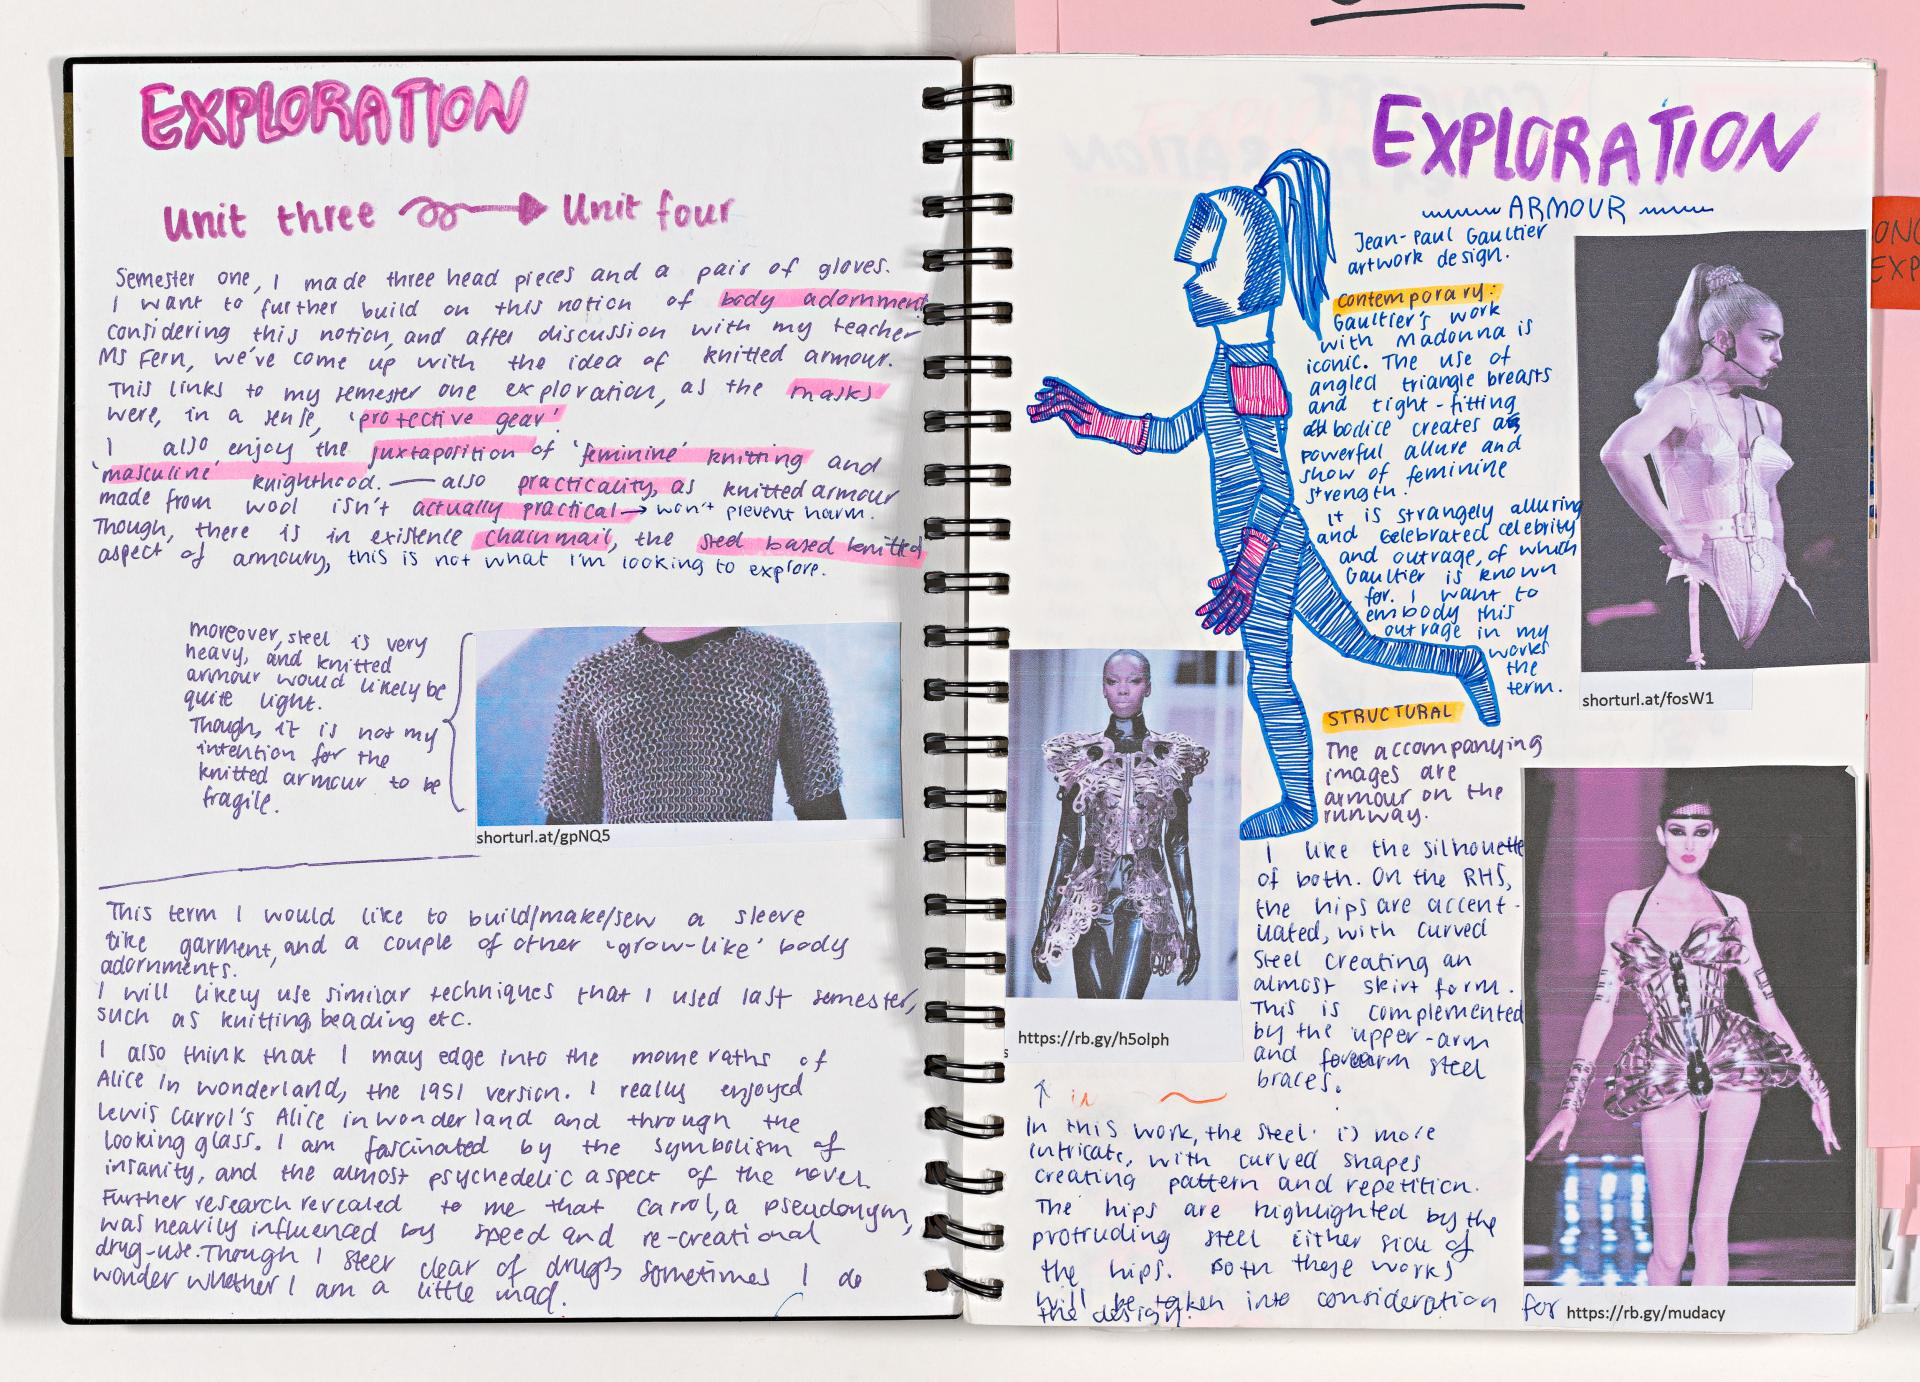 EXPLORATION
Unit three → Unit four
Semester one, I made three head pieces and a pair of gloves.
I want to further build on this notion of body adornment
considering this notion, and after discussion with my teacher
Ms Fern, we've come up with the idea of knitted armour.
This links to my semester one exploration, as the masks
were, in a sense, 'protective gear'
I also enjoy the juxtaposition of 'feminine' knitting and
'masculine' knighthood. — also practicality, as knitted armour
made from wool isn't actually practical → won't prevent harm.
Though, there is in existence chainmail, the steel based knitted
aspect of armoury, this is not what I'm looking to explore.
moreover, steel is very
heavy, and knitted
armour would likely be
quite light.
Though, it is not my
intention for the
knitted armour to be
fragile.
shorturl.at/gpNQ5
This term I would like to build/make/sew a sleeve
like garment, and a couple of other 'grow-like' body
adornments.
I will likely use similar techniques that I used last semester,
such as knitting, beading etc.
I also think that I may edge into the mome raths of
Alice in wonderland, the 1951 version. I really enjoyed
Lewis Carrol's Alice in wonderland and through the
looking glass. I am fascinated by the symbolism of
insanity, and the almost psychedelic aspect of the novel.
Further research revealed to me that Carrol, a pseudonym,
was heavily influenced by speed and re-creational
drug-use. Though I steer clear of drugs, sometimes I do
wonder whether I am a little mad.
EXPLORATION
ARMOUR
Jean-Paul Gaultier
artwork design.
contemporary:
Gaultier's work
with Madonna is
iconic. The use of
angled triangle breasts
and tight-fitting
bodice creates a
powerful allure and
show of feminine
strength.
It is strangely alluring
and celebrated celebrity
and outrage, of which
Gaultier is known
for. I want to
embody this
outrage in my
works
the
term.
shorturl.at/fosW1
STRUCTURAL
The accompanying
images are
armour on the
runway.
I like the silhouette
of both. On the RHS,
the hips are accent-
uated, with curved
steel creating an
almost skirt form.
This is complemented
by the upper-arm
and forearm steel
braces.
https://rb.gy/h5olph
↑ in
In this work, the steel is more
intricate, with curved shapes
creating pattern and repetition.
The hips are highlighted by the
protruding steel either side of
the hips. Both these works
will be taken into consideration for
the design.
https://rb.gy/mudacy
ONC
EXP